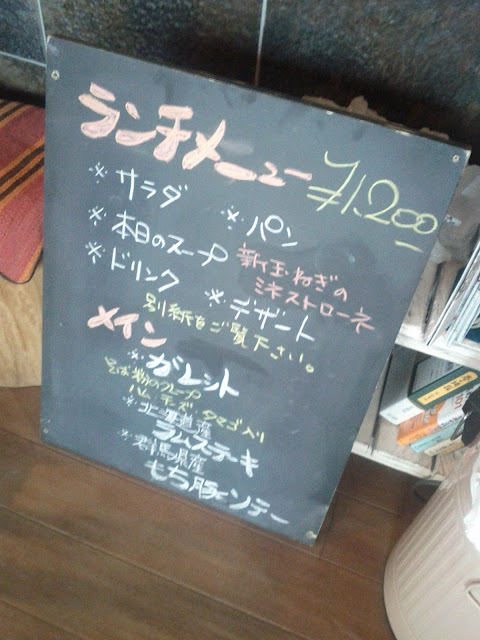 ランチメニュー ¥1,200
※ サラダ ※ パン
※ 本日のスープ 新玉ねぎの
ミネストローネ
※ ドリンク ※ デザート
別紙をご覧下さい。
メイン
※ ガレット
そば粉のクレープ
ハム チーズ タマゴ入り
※ 北海道産
ラムステーキ
※ 群馬県産
もち豚ソテー